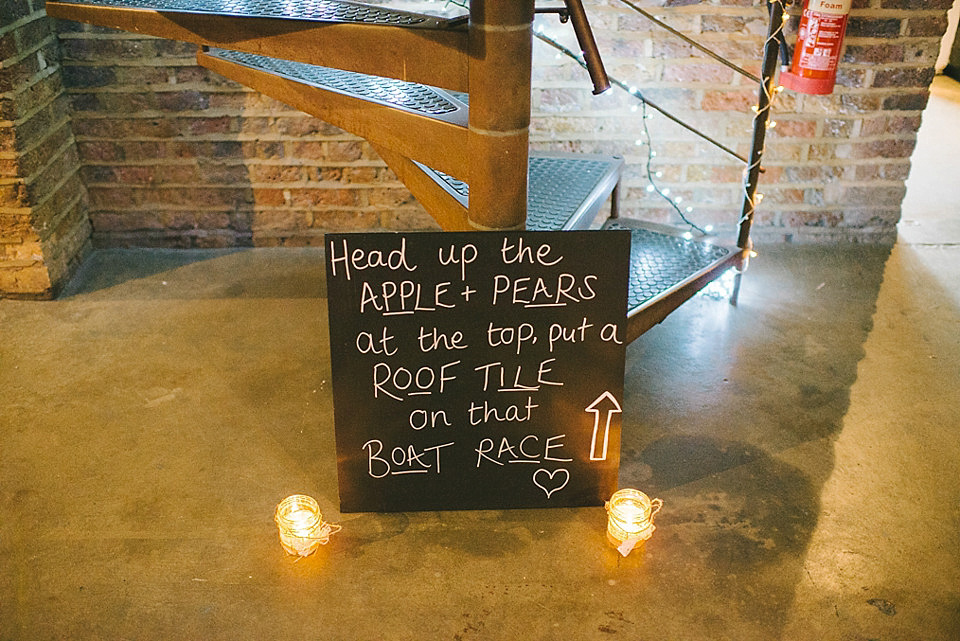 Foam
Head up the
APPLE + PEARS
at the top, put a
ROOF TILE
on that
BOAT RACE